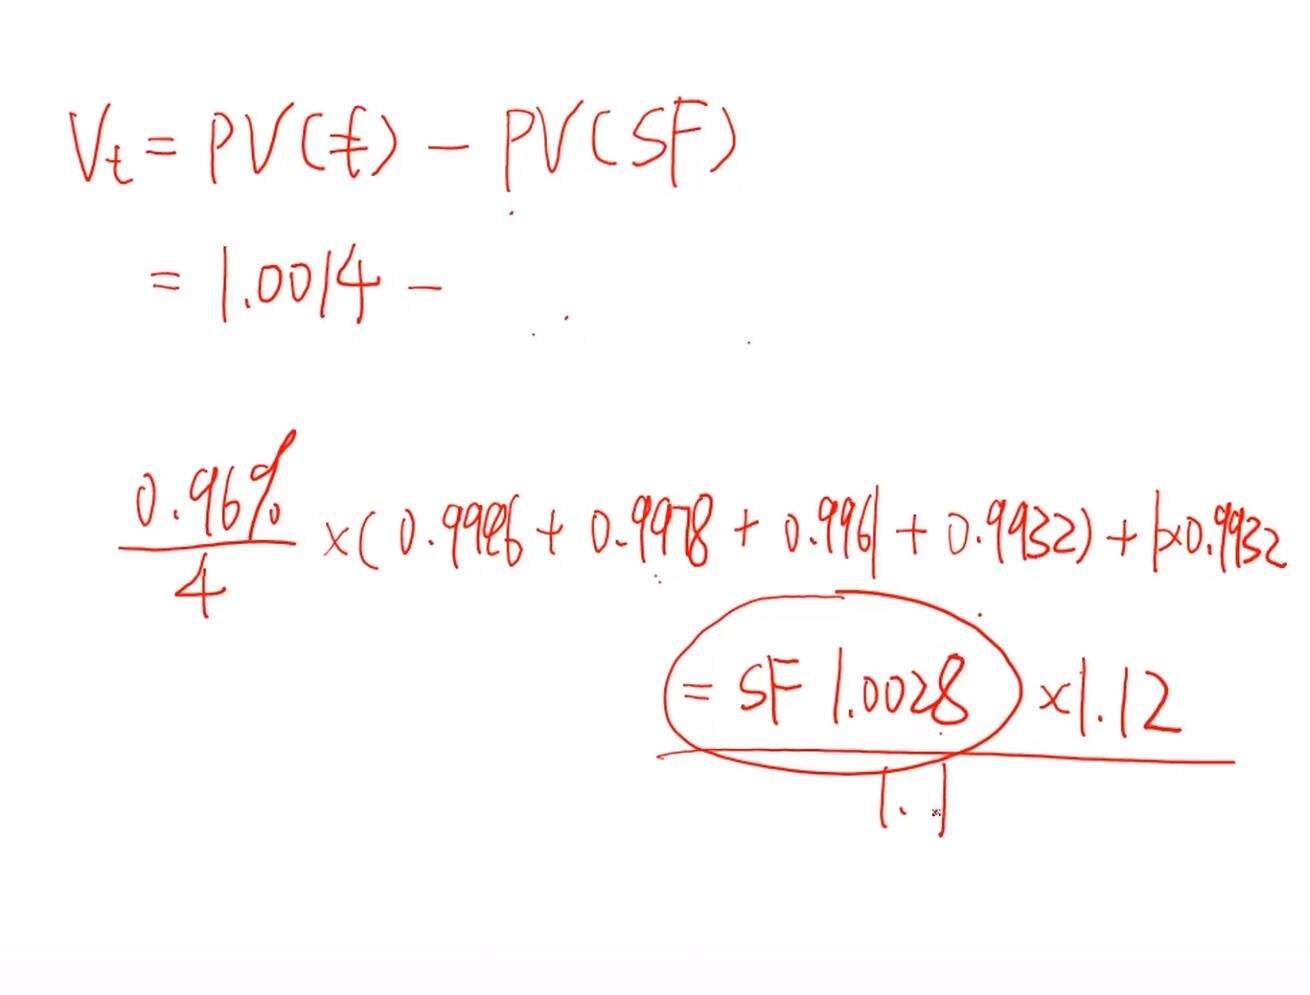 Vt = PV(£) - PV(SF)
= 1.0014 -
0.96%
4
×( 0.9996 + 0.9978 + 0.996| + 0.9932) + 1×0.9932
= SF 1.0028 ×1.12
1.1